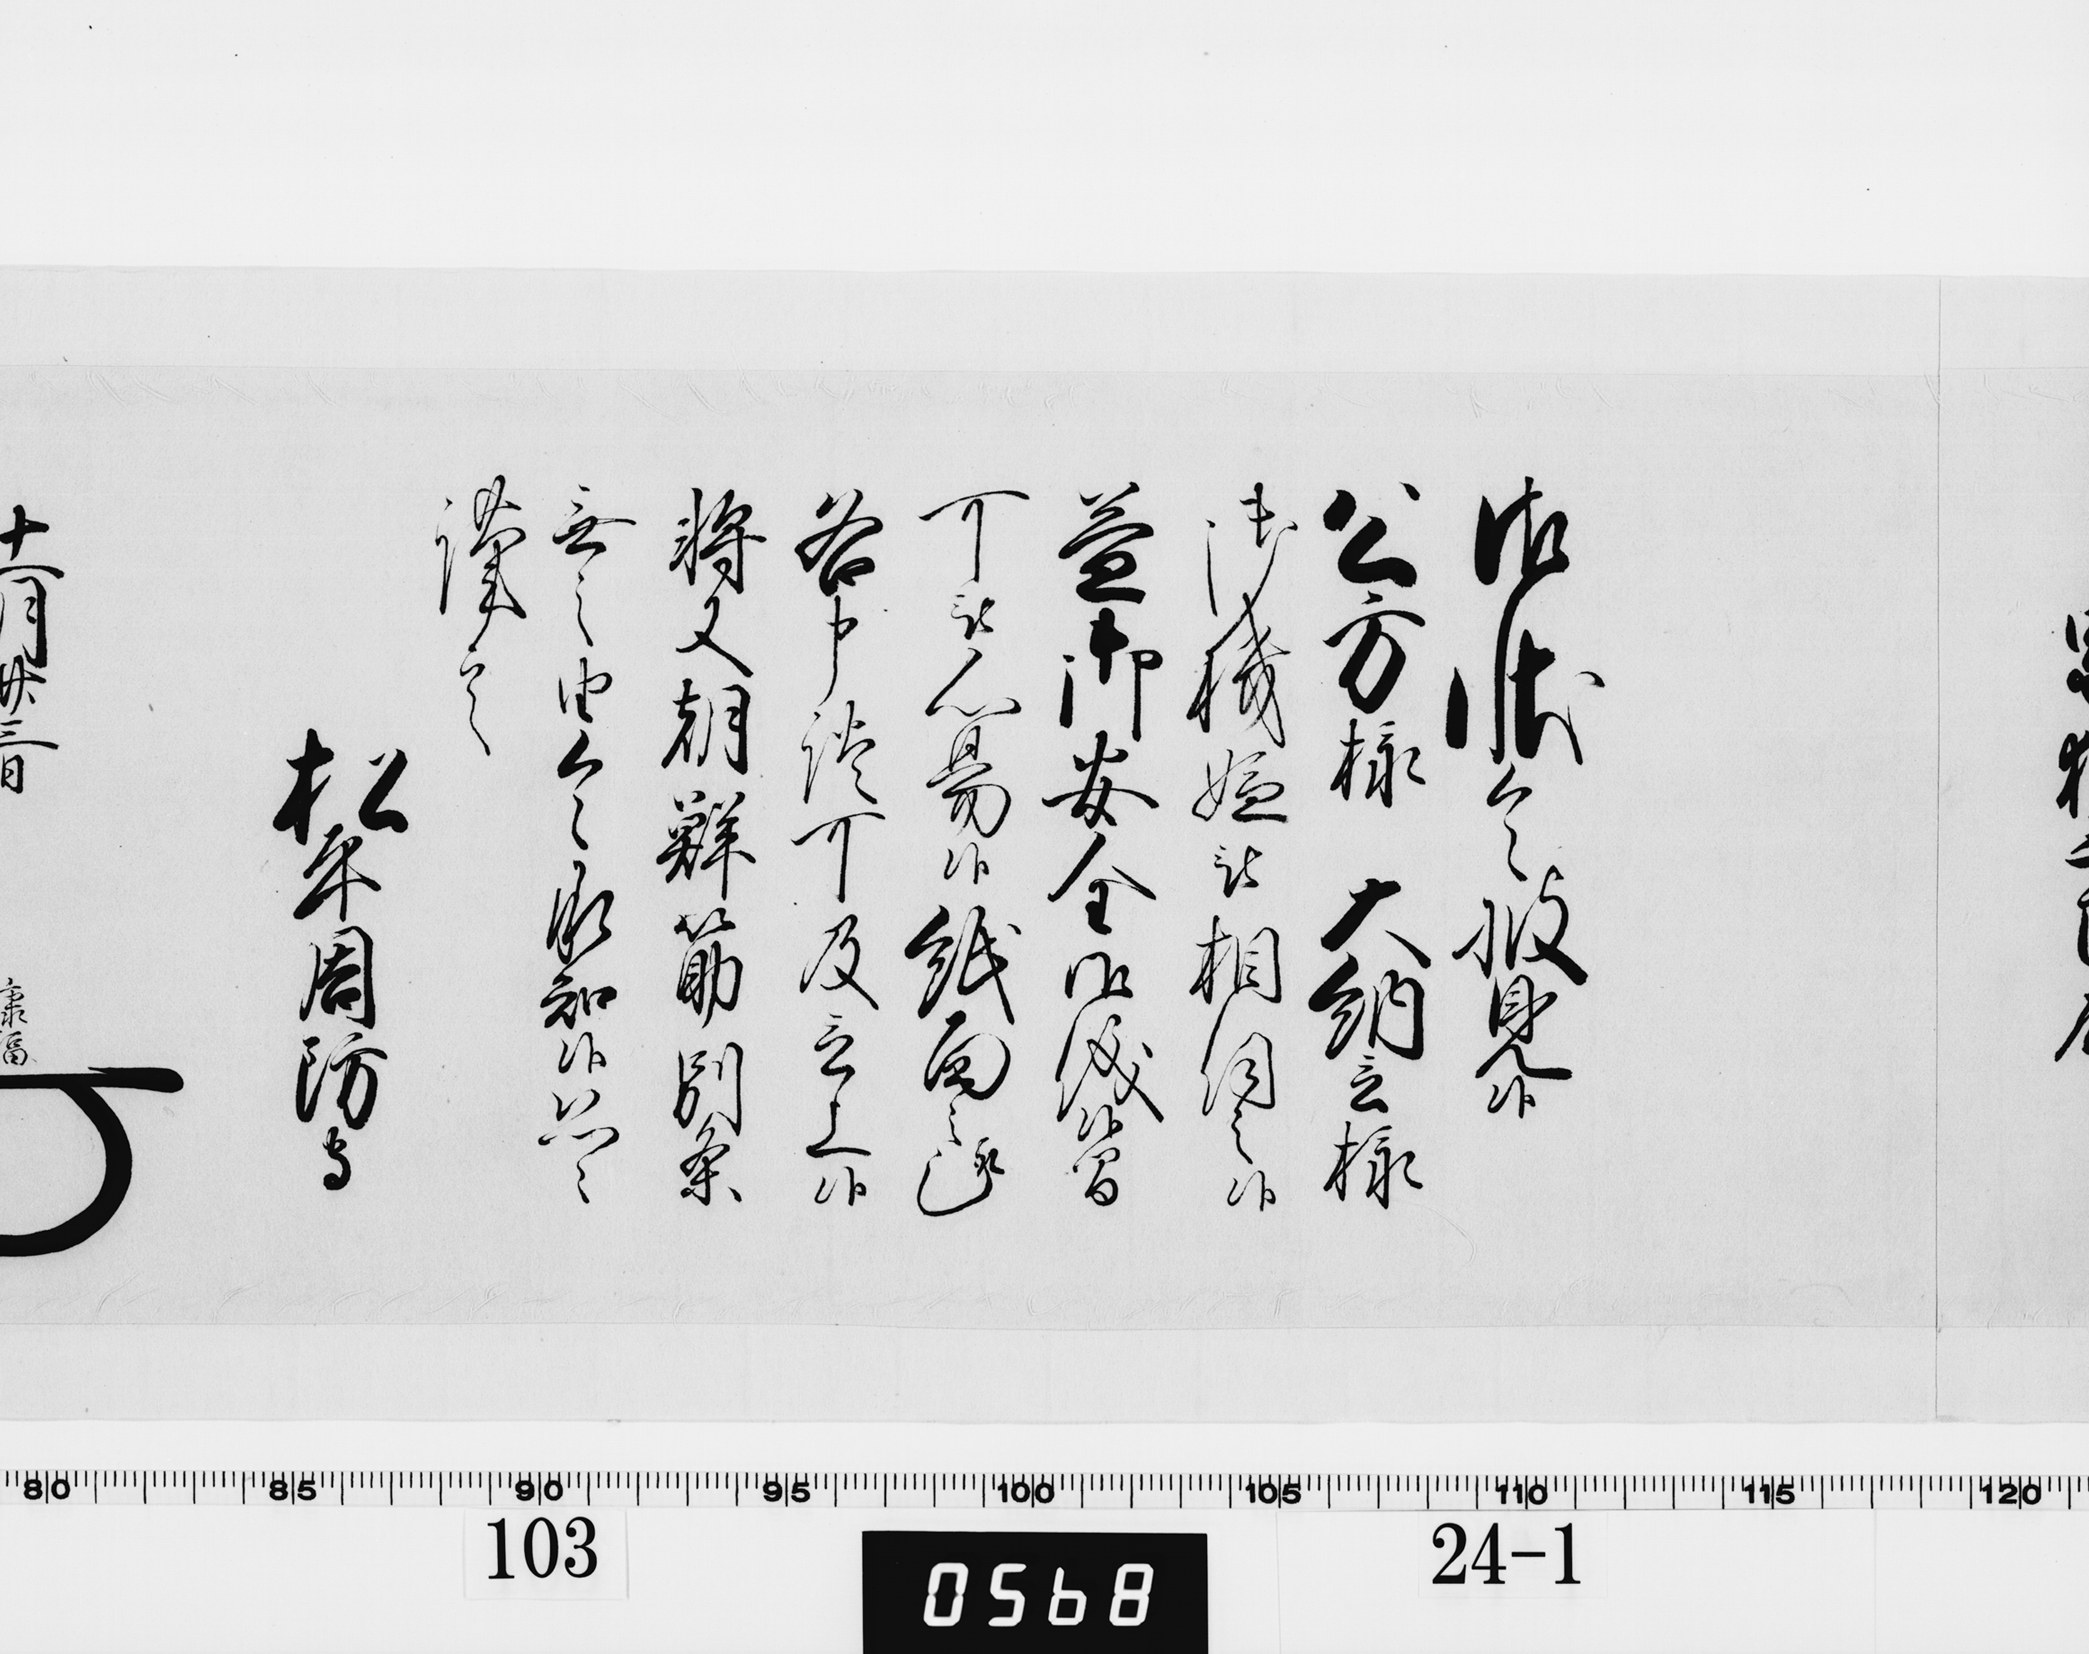 御状令披見候
公方様 大納言様
御機嫌被相伺之候
益御安全御儀候間
可被心易候紙面之趣
各申談可及言上候
将又朝鮮筋別条
無之由令承知候恐々
謹言
松平周防守
十一月廿三日
康福
80 85 90 95 100 105 110 115 120
103
0568
24-1